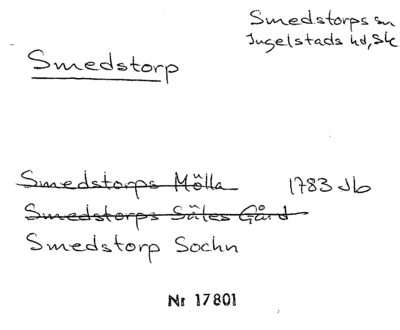 Smedstorps sn
Ingelstads hd, Sk
Smedstorp
Smedstorps Mölla 1783 Jb
Smedstorps Sätes Gård
Smedstorp Sochn
Nr 17801